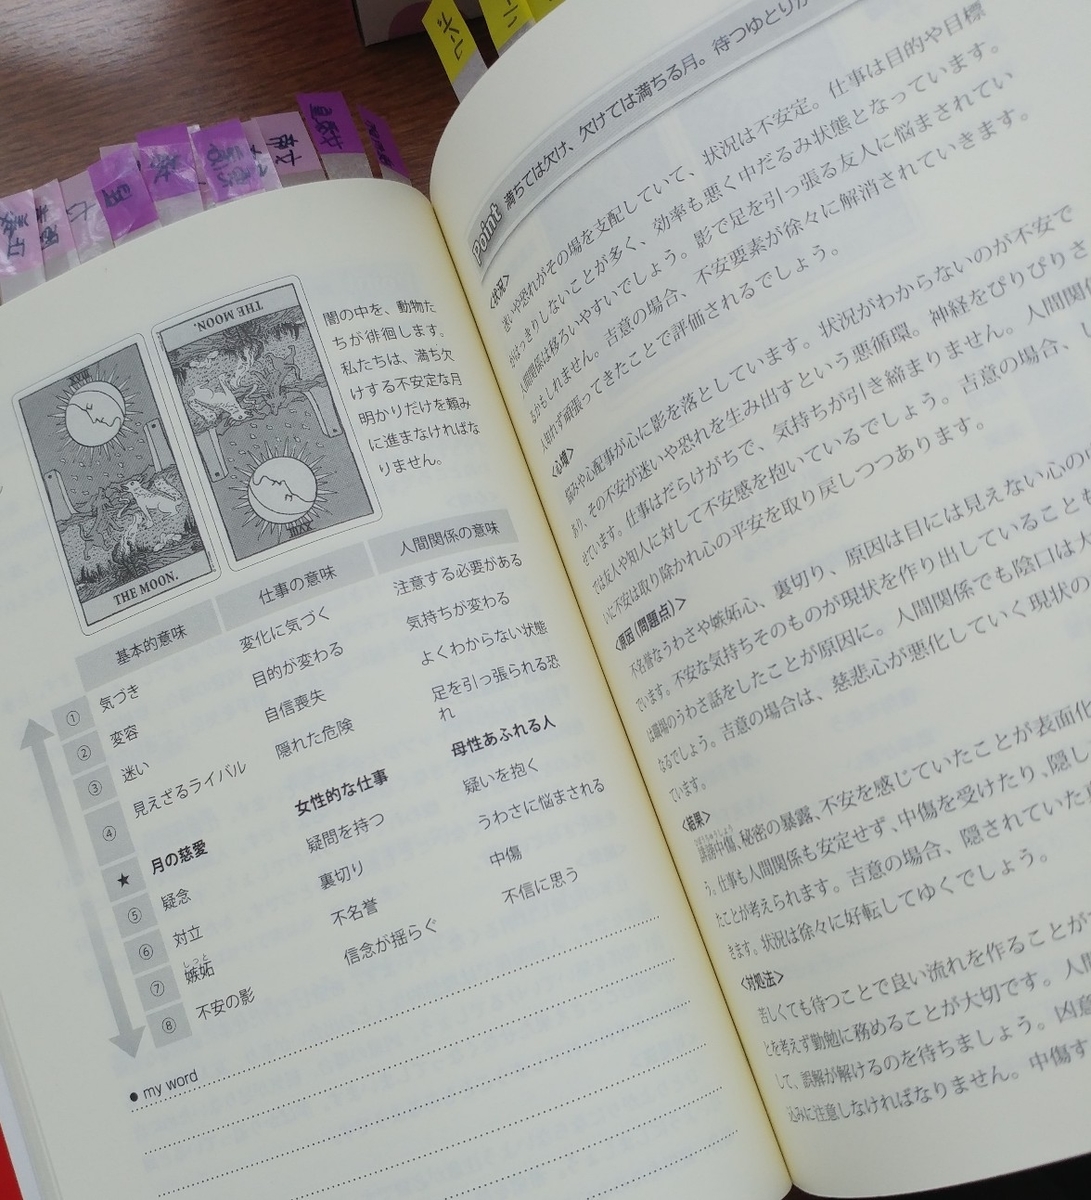 XVIII
THE MOON.
THE MOON.
XVIII
闇の中を、動物た
ちが徘徊します。
私たちは、満ち欠
けする不安定な月
明かりだけを頼み
に進まなければな
りません。
基本的意味 仕事の意味 人間関係の意味
① 気づき 変化に気づく 注意する必要がある
② 変容 目的が変わる 気持ちが変わる
③ 迷い 自信喪失 よくわからない状態
④ 見えざるライバル 隠れた危険 足を引っ張られる恐
れ
★ 月の慈愛 女性的な仕事 母性あふれる人
⑤ 疑念 疑問を持つ 疑いを抱く
⑥ 対立 裏切り うわさに悩まされる
⑦ 嫉妬 不名誉 中傷
しっと
⑧ 不安の影 信念が揺らぐ 不信に思う
● my word
Point 満ちては欠け、欠けては満ちる月。待つゆとりが
〈状況〉
迷いや恐れがその場を支配していて、状況は不安定。仕事は目的や目標
がはっきりしないことが多く、効率も悪く中だるみ状態となっています。
人間関係は移ろいやすいでしょう。影で足を引っ張る友人に悩まされてい
るかもしれません。吉意の場合、不安要素が徐々に解消されていきます。
人知れず頑張ってきたことで評価されるでしょう。
〈心境〉
悩みや心配事が心に影を落としています。状況がわからないのが不安で
あり、その不安が迷いや恐れを生み出すという悪循環。神経をぴりぴりさ
せています。仕事はだらけがちで、気持ちが引き締まりません。人間関係
では友人や知人に対して不安感を抱いているでしょう。吉意の場合、
いに不安は取り除かれ心の平安を取り戻しつつあります。
〈原因(問題点)〉
不名誉なうわさや嫉妬心、裏切り、原因は目には見えない心の
でいます。不安な気持ちそのものが現状を作り出していること
は職場のうわさ話をしたことが原因に。人間関係でも陰口は
なるでしょう。吉意の場合は、慈悲心が悪化していく現状の
ています。
〈結果〉
誹謗中傷、秘密の暴露、不安を感じていたことが表面化
ひぼうちゅうしょう
う。仕事も人間関係も安定せず、中傷を受けたり、隠し
たことが考えられます。吉意の場合、隠されていた
きます。状況は徐々に好転してゆくでしょう。
〈対処法〉
苦しくても待つことで良い流れを作ることが
とを考えず勤勉に務めることが大切です。人間
して、誤解が解けるのを待ちましょう。凶意
込みに注意しなければなりません。中傷す